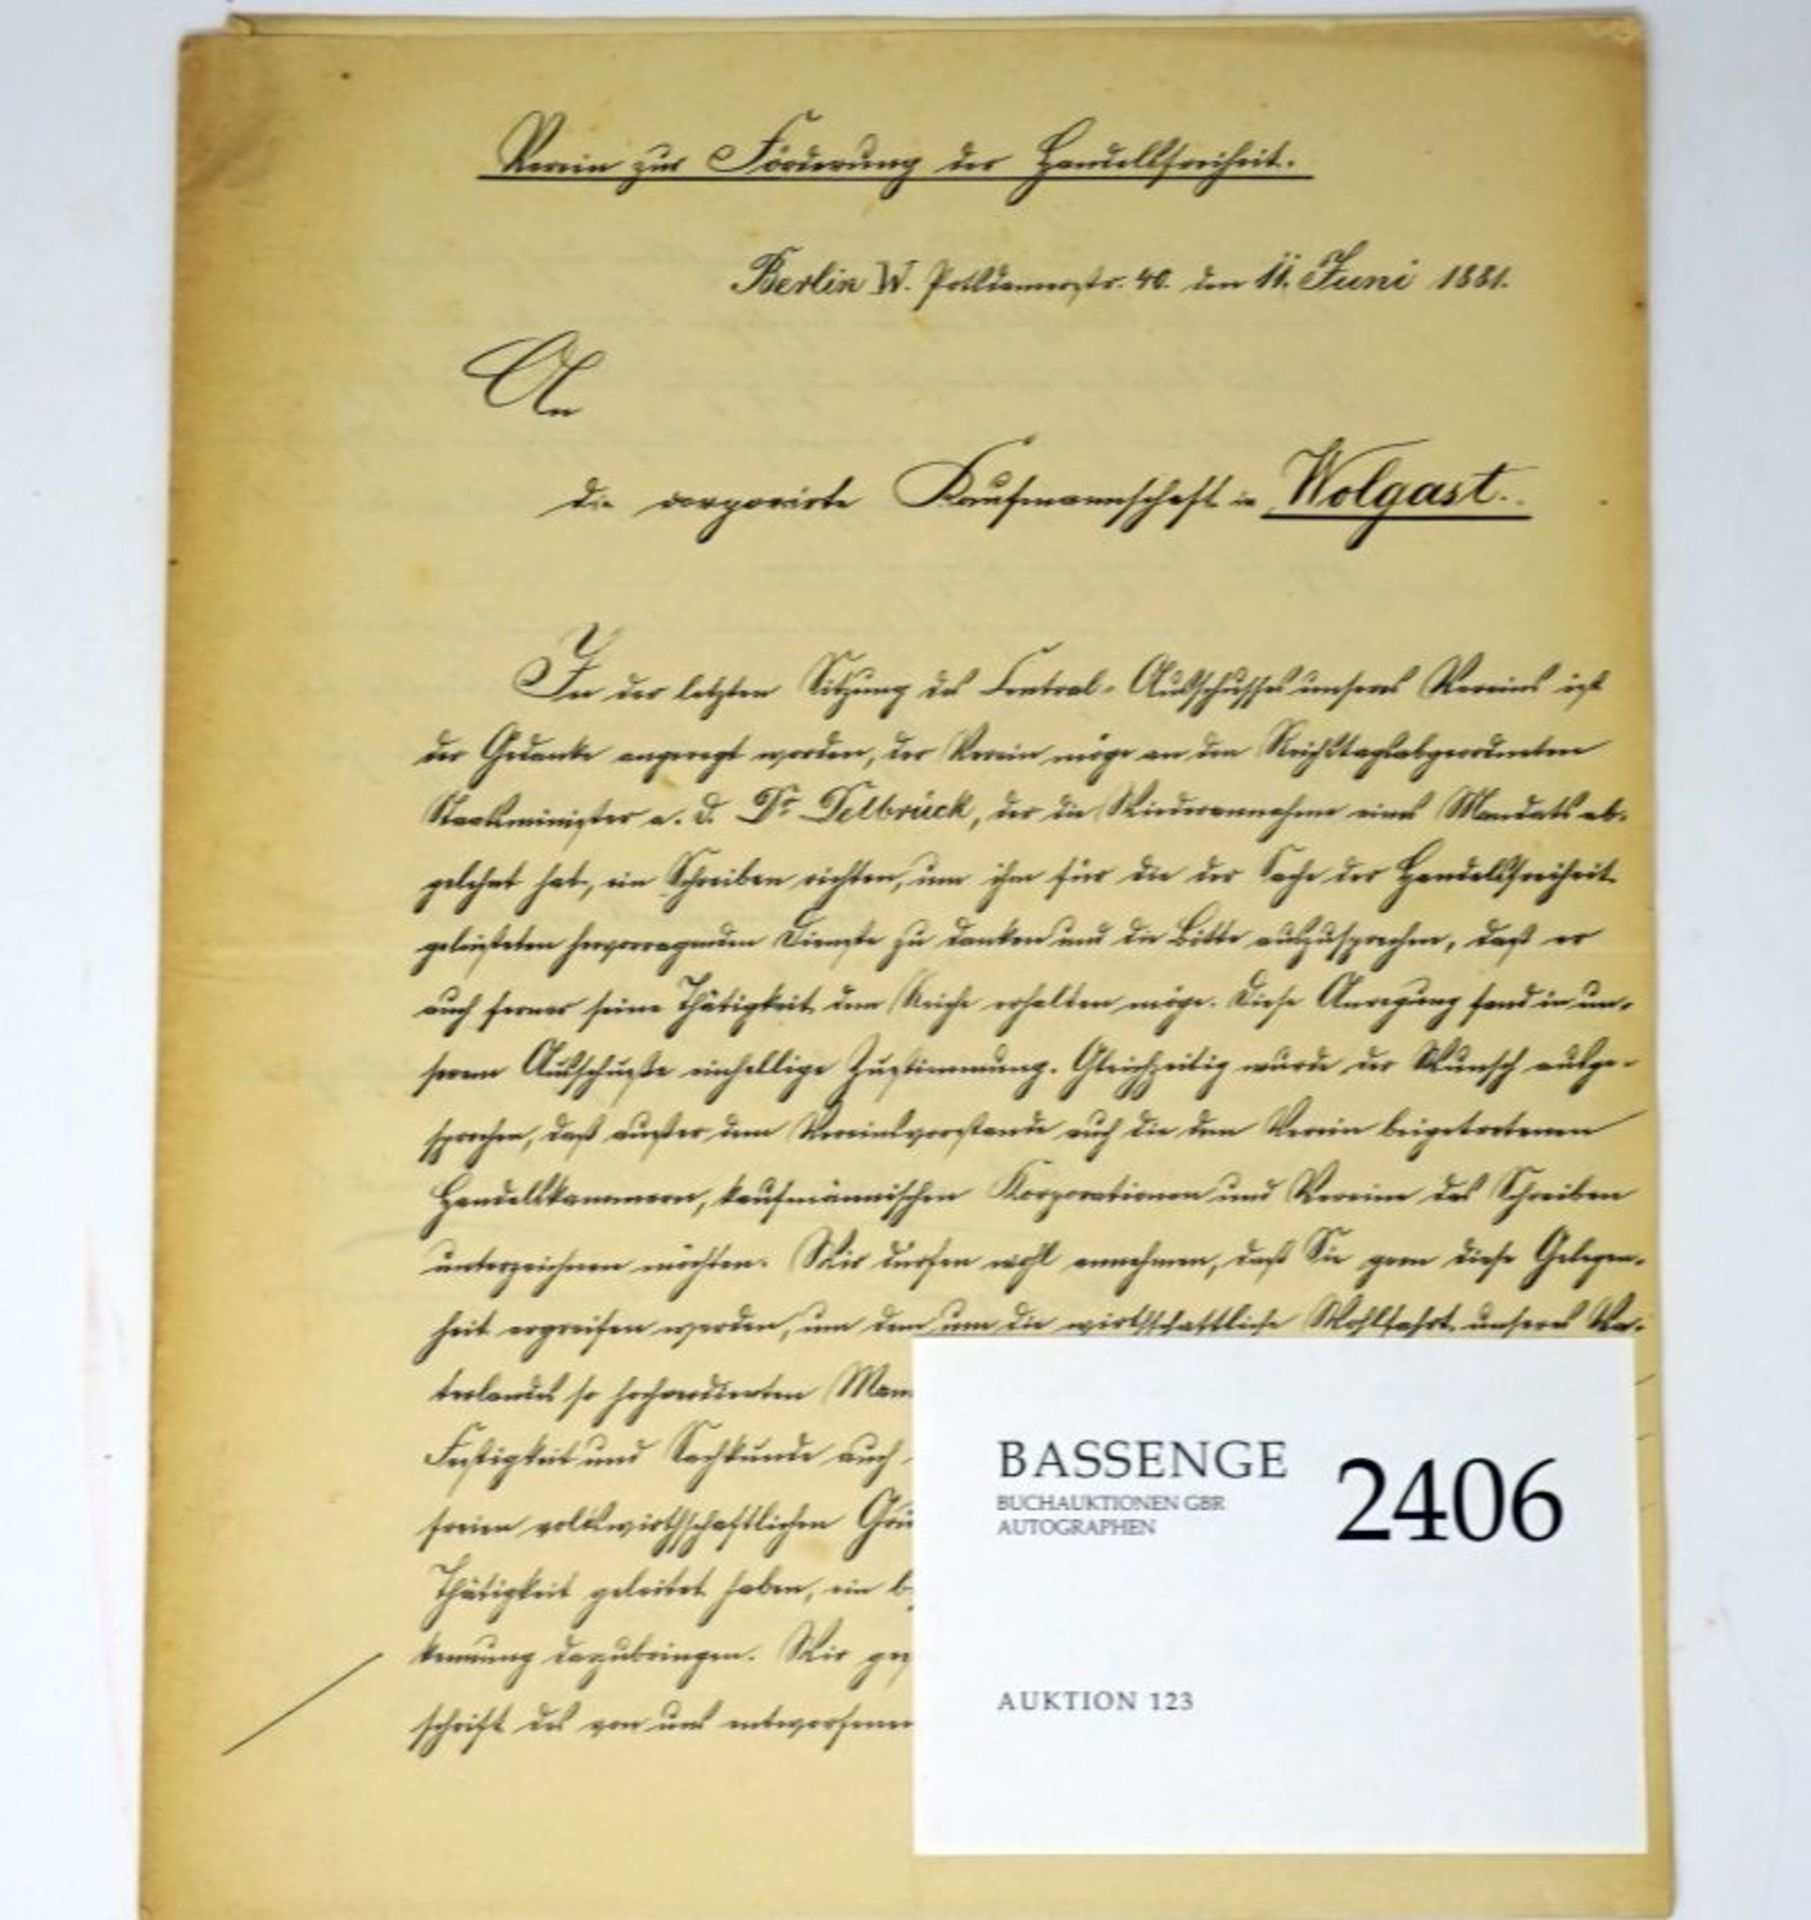 Verein zur Förderung der Handelsfreiheit.
Berlin W. Potsdamerstr. 40. den 11. Juni 1881.
An
die corporirte Kaufmannschaft in Wolgast.
In der letzten Sitzung des Central-Ausschusses unseres Vereins ist
der Gedanke angeregt worden, der Verein möge an den Reichstagsabgeordneten
Staatsminister a. D. Dr Delbrück, der die Wiederannahme eines Mandats ab-
gelehnt hat, ein Schreiben richten, um ihm für die der Sache der Handelsfreiheit
geleisteten hervorragenden Dienste zu danken und die Bitte auszusprechen, daß er
auch ferner seine Thätigkeit dem Reiche erhalten möge. Diese Anregung fand in un-
serem Ausschuße einhellige Zustimmung. Gleichzeitig wurde der Wunsch ausge-
sprochen, daß außer dem Vereinsvorstande auch die dem Verein beigetretenen
Handelskammern, kaufmännischen Korporationen und Vereine das Schreiben
unterzeichnen möchten. Wir dürfen wohl annehmen, daß Sie gern diese Gelegen-
heit ergreifen werden, um dem um die wirthschaftliche Wohlfahrt unseres Va-
terlandes so hochverdienten Man
Festigkeit und Sachkunde auch
freien volkswirthschaftlichen Grü
Thätigkeit geleitet haben, ein b
kennung darzubringen. Wir ge
schrift des von uns entworfenen
BASSENGE
BUCHAUKTIONEN GBR
AUTOGRAPHEN
2406
AUKTION 123